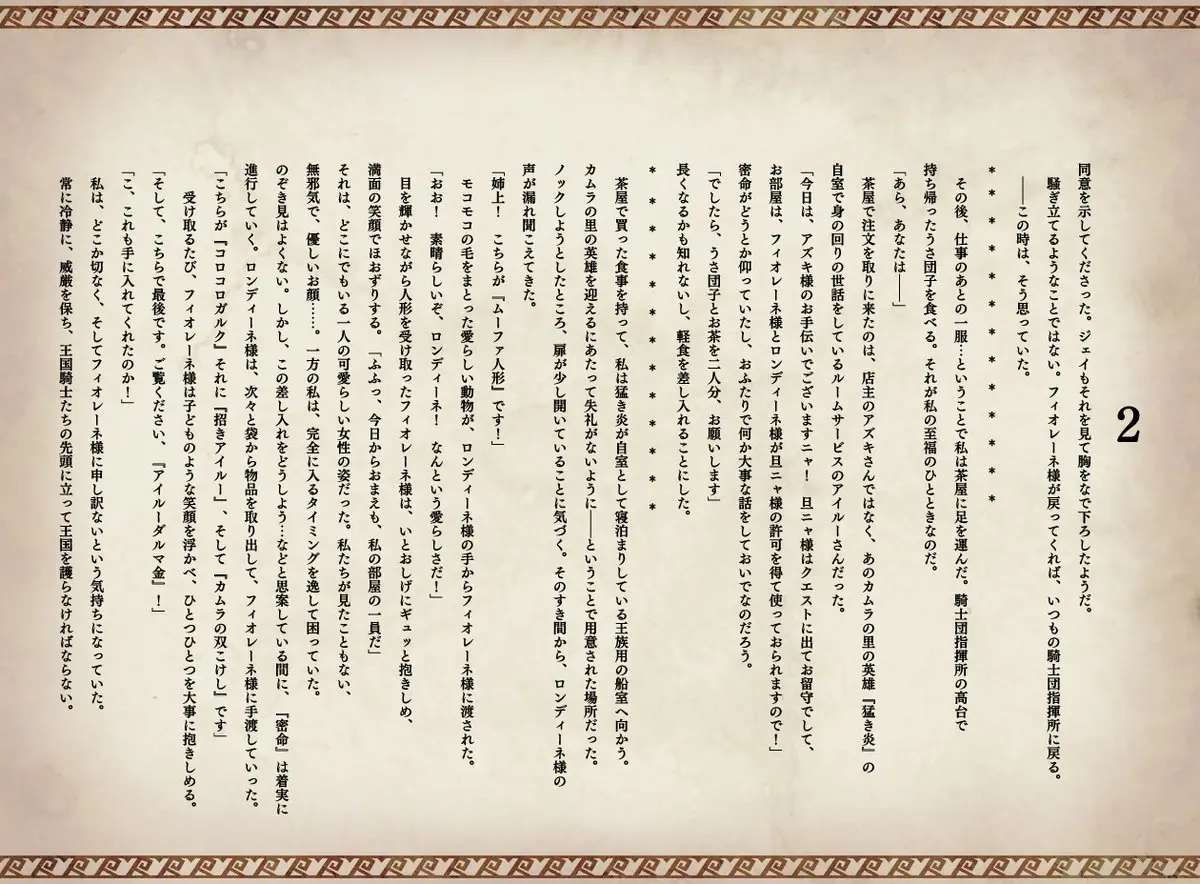 2
同意を示してくださった。ジェイもそれを見て胸をなで下ろしたようだ。
騒ぎ立てるようなことではない。フィオレーネ様が戻ってくれば、いつもの騎士団指揮所に戻る。
――この時は、そう思っていた。
＊＊＊＊＊＊＊＊＊＊＊＊＊
その後、仕事のあとの一服…ということで私は茶屋に足を運んだ。騎士団指揮所の高台で
持ち帰ったうさ団子を食べる。それが私の至福のひとときなのだ。
「あら、あなたは――」
茶屋で注文を取りに来たのは、店主のアズキさんではなく、あのカムラの里の英雄『猛き炎』の
自室で身の回りの世話をしているルームサービスのアイルーさんだった。
「今日は、アズキ様のお手伝いでございますニャ！　旦ニャ様はクエストに出てお留守でして、
お部屋は、フィオレーネ様とロンディーネ様が旦ニャ様の許可を得て使っておられますので！」
密命がどうとか仰っていたし、おふたりで何か大事な話をしておいでなのだろう。
「でしたら、うさ団子とお茶を二人分、お願いします」
長くなるかも知れないし、軽食を差し入れることにした。
＊＊＊＊＊＊＊＊＊＊＊＊＊
茶屋で買った食事を持って、私は猛き炎が自室として寝泊まりしている王族用の船室へ向かう。
カムラの里の英雄を迎えるにあたって失礼がないように――ということで用意された場所だった。
ノックしようとしたところ、扉が少し開いていることに気づく。そのすき間から、ロンディーネ様の
声が漏れ聞こえてきた。
「姉上！　こちらが『ムーファ人形』です！」
モコモコの毛をまとった愛らしい動物が、ロンディーネ様の手からフィオレーネ様に渡された。
「おお！　素晴らしいぞ、ロンディーネ！　なんという愛らしさだ！」
目を輝かせながら人形を受け取ったフィオレーネ様は、いとおしげにギュッと抱きしめ、
満面の笑顔でほおずりする。「ふふっ、今日からおまえも、私の部屋の一員だ」
それは、どこにでもいる一人の可愛らしい女性の姿だった。私たちが見たこともない、
無邪気で、優しいお顔……。一方の私は、完全に入るタイミングを逸して困っていた。
のぞき見はよくない。しかし、この差し入れをどうしよう…などと思案している間に、『密命』は着実に
進行していく。ロンディーネ様は、次々と袋から物品を取り出して、フィオレーネ様に手渡していった。
「こちらが『コロコロガルク』それに『招きアイルー』、そして『カムラの双こけし』です」
受け取るたび、フィオレーネ様は子どものような笑顔を浮かべ、ひとつひとつを大事に抱きしめる。
「そして、こちらで最後です。ご覧ください、『アイルーダルマ金』！」
「こ、これも手に入れてくれたのか！」
私は、どこか切なく、そしてフィオレーネ様に申し訳ないという気持ちになっていた。
常に冷静に、威厳を保ち、王国騎士たちの先頭に立って王国を護らなければならない。